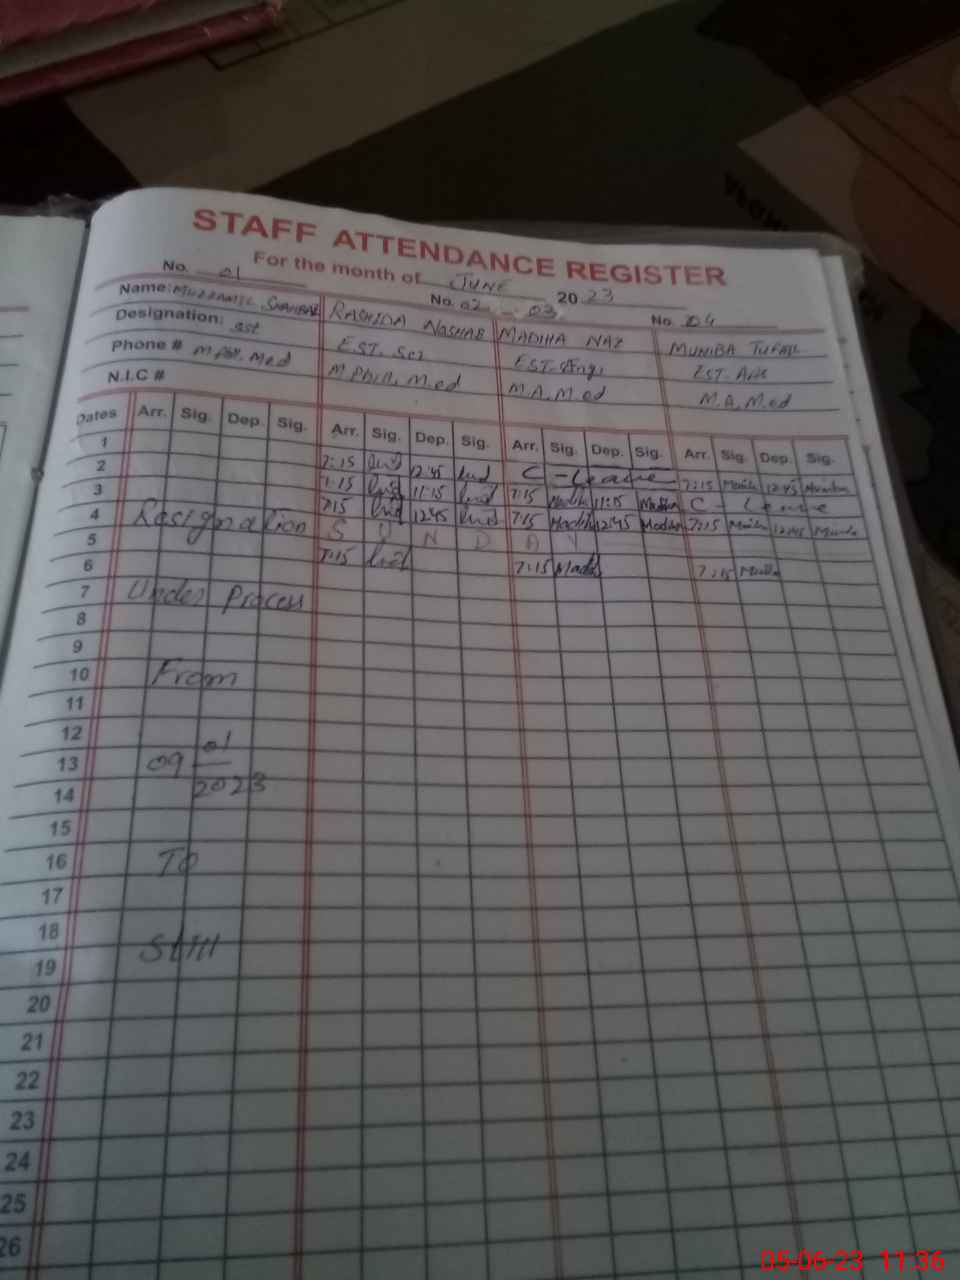 STAFF ATTENDANCE REGISTER
For the month of JUNE 2023
No. 01 No. 02 03 No. 04
Name: MUZZAMIL RASHIDA NOSHAB MADIHA NAZ MUNIBA TUFAIL
Designation: EST. Sci EST. Eng. EST. Arts
Phone # M.Phil, M.ed M.Phil, M.ed M.A, M.ed M.A, M.ed
N.I.C #
Dates Arr. Sig. Dep. Sig. Arr. Sig. Dep. Sig. Arr. Sig. Dep. Sig. Arr. Sig. Dep. Sig.
1 7:15 12:45 C - Leave 7:15 12:45
2 7:15 11:15 7:15 11:15 C - Leave
3 7:15 12:45 7:15 12:45 7:15 12:45
4 Resignation S U N D A Y
5 7:15 7:15 7:15
6
7 Under Process
8
9
10 From
11
12
13 09 01
14 2023
15
16 To
17
18
19 Still
20
21
22
23
24
25
26
05-06-23 11:36